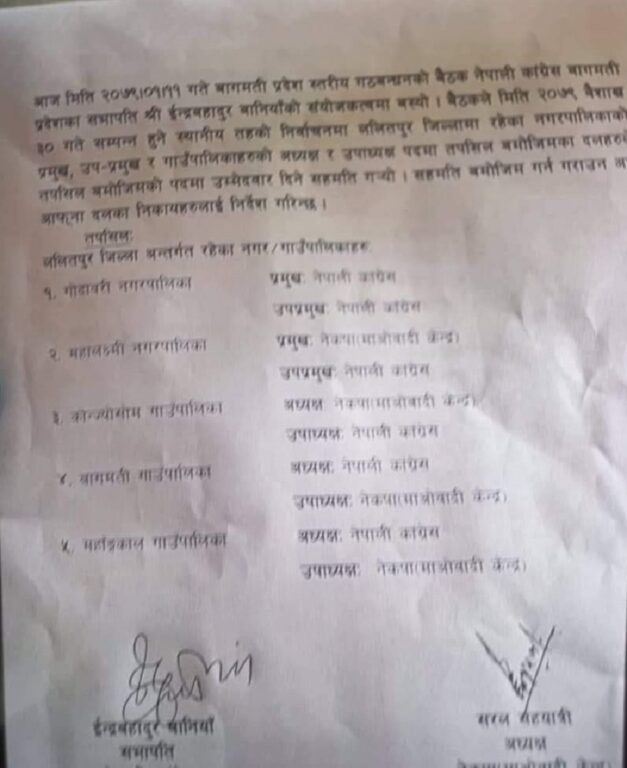 आज मिति २०७९।०१।११ गते बागमती प्रदेश स्तरीय गठबन्धनको बैठक नेपाली कांग्रेस बागमती
प्रदेशका सभापति श्री ईन्द्रबहादुर बानियाँको संयोजकत्वमा बस्यो । बैठकले मिति २०७९ बैशाख
३० गते सम्पन्न हुने स्थानीय तहको निर्वाचनमा ललितपुर जिल्लामा रहेका नगरपालिकाको
प्रमुख, उप-प्रमुख र गाउँपालिकाहरुको अध्यक्ष र उपाध्यक्ष पदमा तपसिल बमोजिमका दलहरुले
तपसिल बमोजिमको पदमा उम्मेदवार दिने सहमति गर्‍यो । सहमति बमोजिम गर्न गराउन
आफ्ना दलका निकायहरुलाई निर्देश गरिन्छ ।
तपसिल:
ललितपुर जिल्ला अन्तर्गत रहेका नगर/गाउँपालिकाहरु
१. गोदावरी नगरपालिका प्रमुख: नेपाली कांग्रेस
उपप्रमुख: नेपाली कांग्रेस
२. महालक्ष्मी नगरपालिका प्रमुख: नेकपा(माओवादी केन्द्र)
उपप्रमुख: नेपाली कांग्रेस
३. कोन्ज्योसोम गाउँपालिका अध्यक्ष: नेकपा(माओवादी केन्द्र)
उपाध्यक्ष: नेपाली कांग्रेस
४. बागमती गाउँपालिका अध्यक्ष: नेपाली कांग्रेस
उपाध्यक्ष: नेकपा(माओवादी केन्द्र)
५. महाङ्काल गाउँपालिका अध्यक्ष: नेपाली कांग्रेस
उपाध्यक्ष: नेकपा(माओवादी केन्द्र)
ईन्द्रबहादुर बानियाँ
सभापति
सरल सहयात्री
अध्यक्ष
नेकपा(माओवादी केन्द्र)